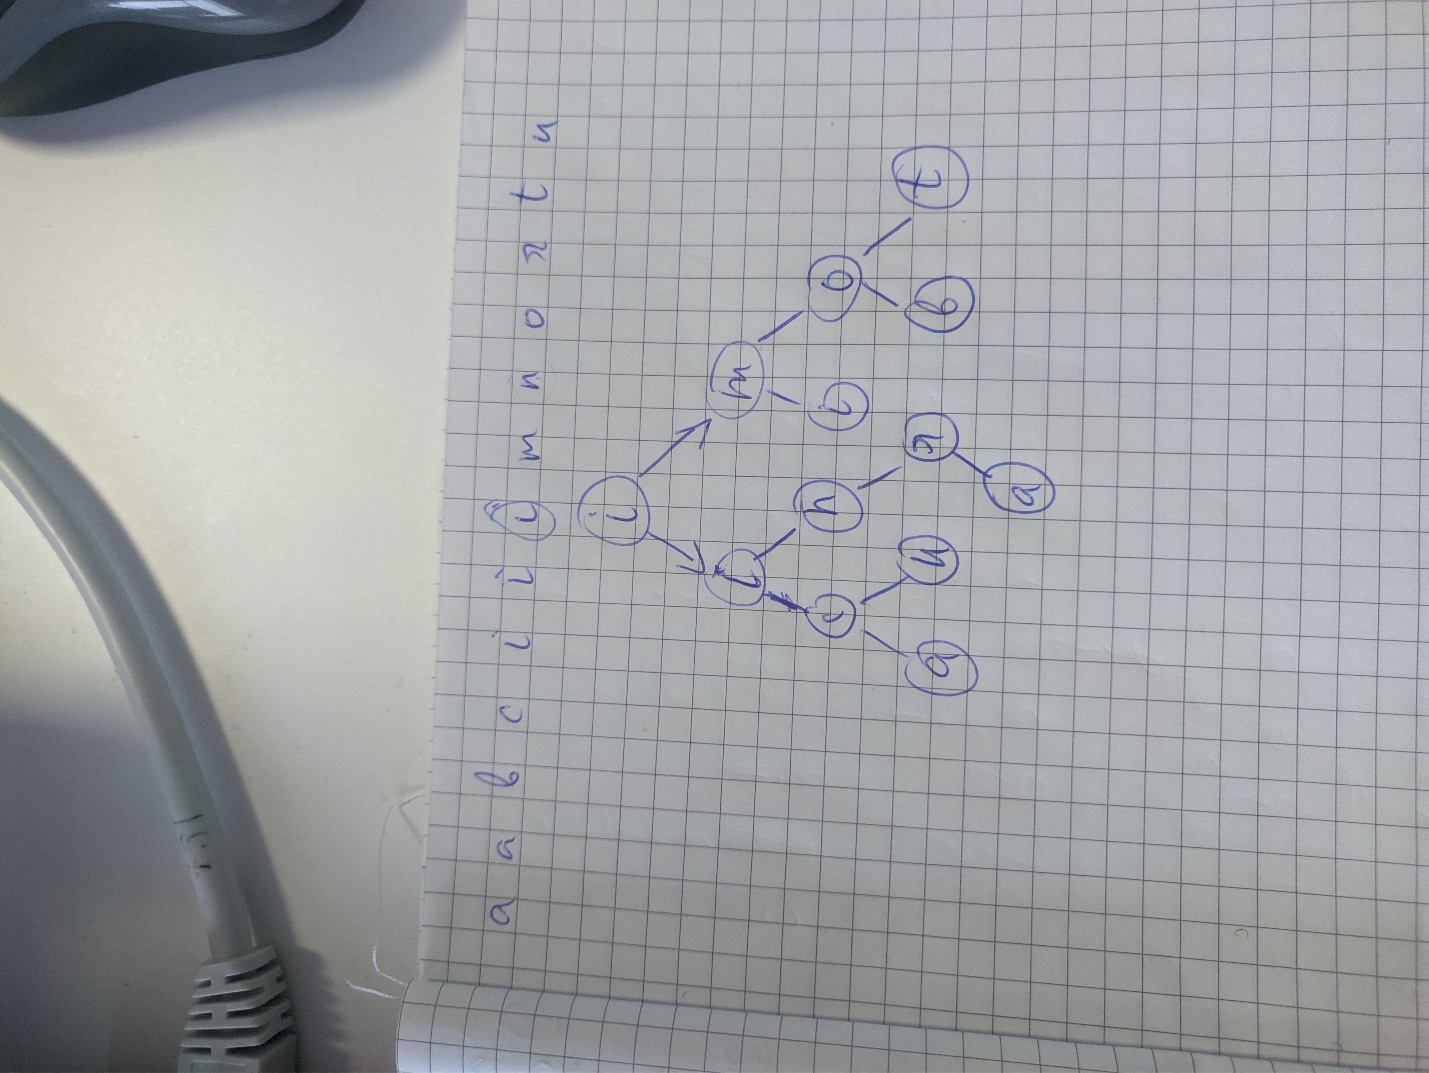 a a b c i i i m n o r t u
i
i m
c n i o
a u r b t
a